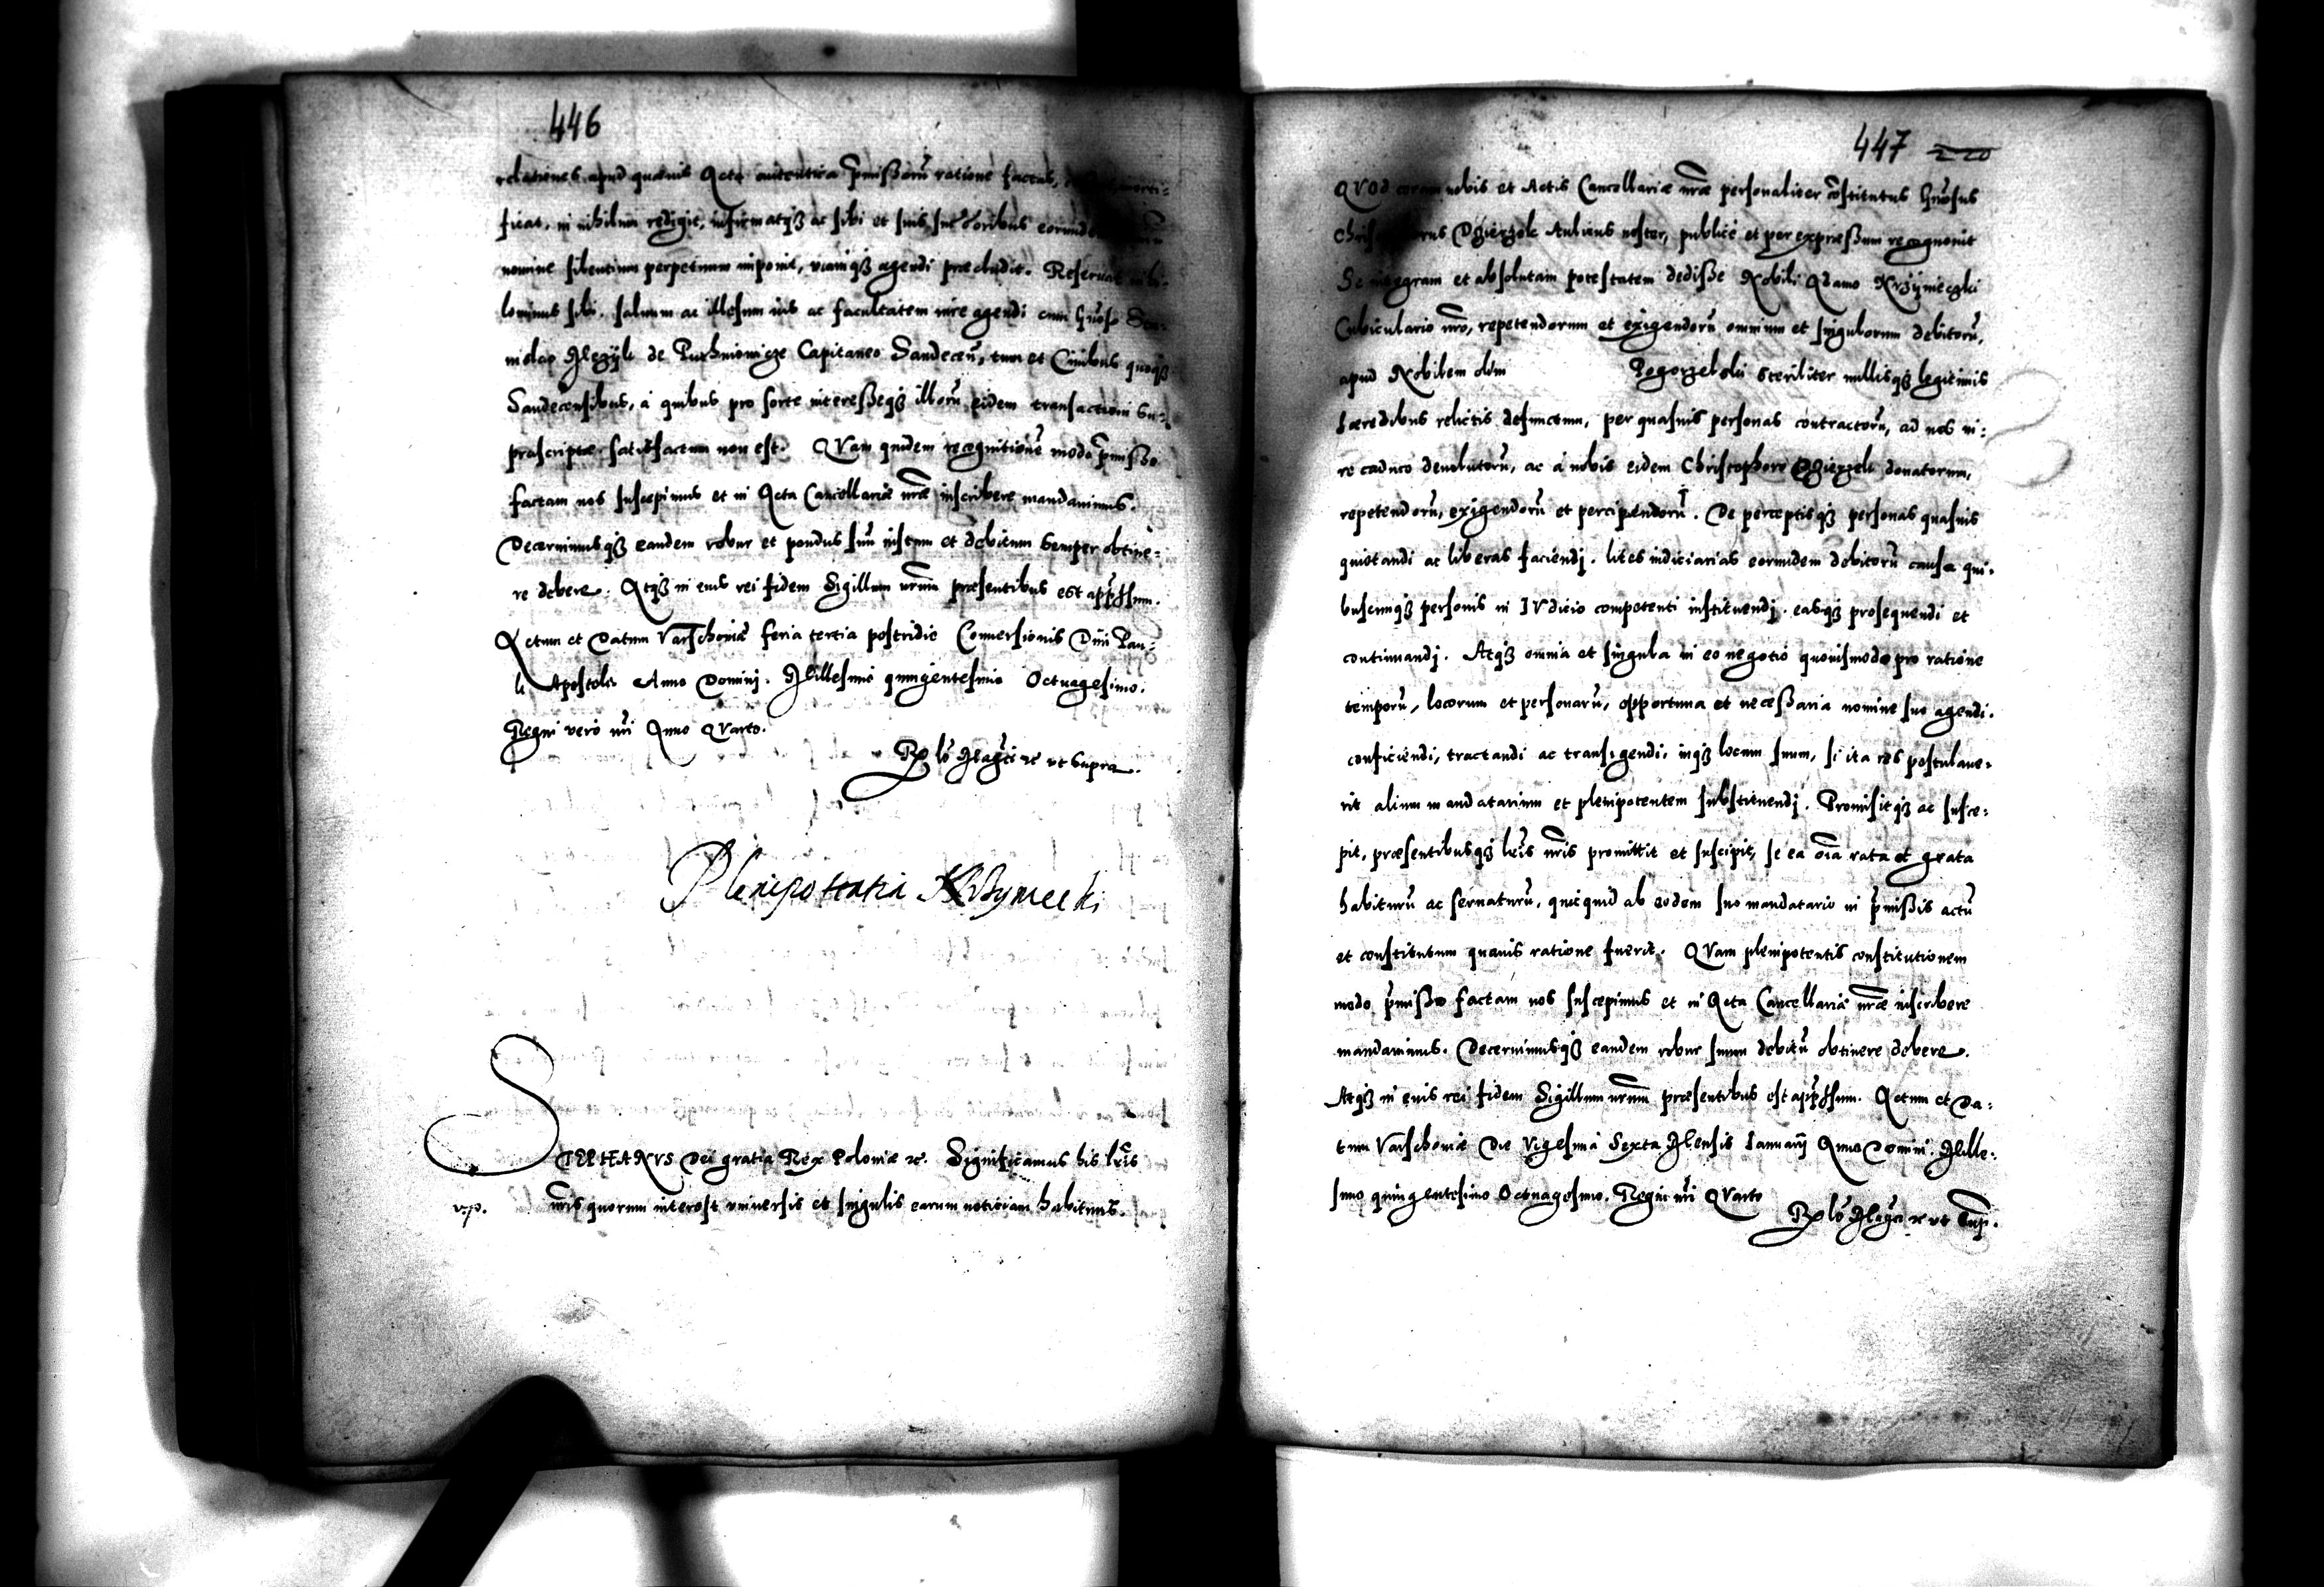 446
relationes apud quævis Acta autentica p̄missorū ratione factas,
ficat, in nihilum redigit, infirmatq̃ ac sibi et suis successoribus
nomine silentium perpetuum imponit, viamq̃ agendi præcludit. Reservat nihi-
lominus sibi, salvum ac illesum ius ac facultatem iure agendi cum Gn̄oso Sta-
nislao Mężyk de Capitaneo Sandecen̄, tum et Civibus quoq̃
Sandecensibus, a quibus pro sorte interesseq̃ illorū eidem transactioni su-
prascriptæ satisfactum non est. QVam quidem recognitionē modo p̄misso
factam nos suscepimus et in Acta Cancellariæ nr̄æ inscribere mandavimus.
Decernimusq̃ eandem robur et pondus suū iustum et debitum semper obtine-
re debere. Atq̃ in eius rei fidem Sigillum nr̄um præsentibus est app̄ssum.
Actum et Datum Varschoviæ feria tertia postridie Conversionis Divi Pau-
li Apostoli Anno Dominj. Millesimo quingentesimo Octuagesimo.
Regni vero nr̄i Anno QVarto.
ut supra
Plenipotentia Krzyniecki
STEPHANVS Dei gratia Rex Poloniæ &c. Significamus his lr̄is
v.p. nr̄is quorum interest universis et singulis earum noticiam habituris.
447 220
QVOd coram nobis et Actis Cancellariæ nr̄æ personaliter cōstitutus Gn̄osus
Dzierzek Aulicus noster, publice et per expressum recognovit
Se integram et absolutam potestatem dedisse Nobili Adamo Krzÿnieczki
Cubiculario nr̄o, repetendorum et exigendorū omnium et singulorum debitorū,
apud Nobilem olim Pogorzelski steriliter nullisq̃ legitimis
hæredibus relictis defunctum, per quasvis personas contractorū, ad nos iu-
re caduco devolutorū, ac a nobis eidem Christophoro Dzierzek donatorum,
repetendorū, exigendorū et percipiendorū. De perceptisq̃ personas quasvis
quietandi ac liberas faciendj. lites iudiciarias eorundem debitorū causa qui-
buscunq̃ personis in IVdicio competenti instituendj. easq̃ prosequendi et
continuandj. Atq̃ omnia et singula in eo negotio quovismodo pro ratione
temporū, locorum et personarū, opportuna et necessaria nomine suo agendi.
conficiendi, tractandi ac transigendi, inq̃ locum suum, si ita res postulave-
rit alium mandatarium et plenipotentem substituendj. Promisitq̃ ac susce-
pit, præsentibusq̃ lr̄is nr̄is promittit et suscipit, se ea oīa rata et grata
habiturū ac servaturū, quicquid ab eodem suo mandatario in p̄missis actū
et constitutum quavis ratione fuerit. QVam plenipotentis constitutionem
modo p̄misso factam nos suscepimus et in Acta Cancellariæ nr̄æ inscribere
mandavimus. Decernimusq̃ eandem robur suum debitū obtinere debere.
Atq̃ in euis rei fidem Sigillum nr̄um præsentibus est app̄ssum. Actum et Da-
tum Varschoviæ Die Vigesima Sexta Mensis Ianuarij Anno Domini. Mille-
simo quingentesimo Octuagesimo. Regni nr̄i QVarto
ut sup.